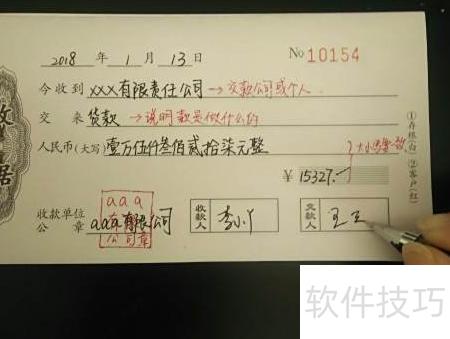 2018 年 1 月 13 日 No 10154
今收到 XXX有限责任公司 →交款公司或个人
交来 货款 →说明款是做什么的
人民币(大写) 壹万伍仟叁佰贰拾柒元整
大小写要一致
¥ 15327.—
收款单位公章 aaa有限公司
aaa有限公司章
收款人 李小丫
交款人 王五
①存根(白) ②客户(红)
收据
软件技巧